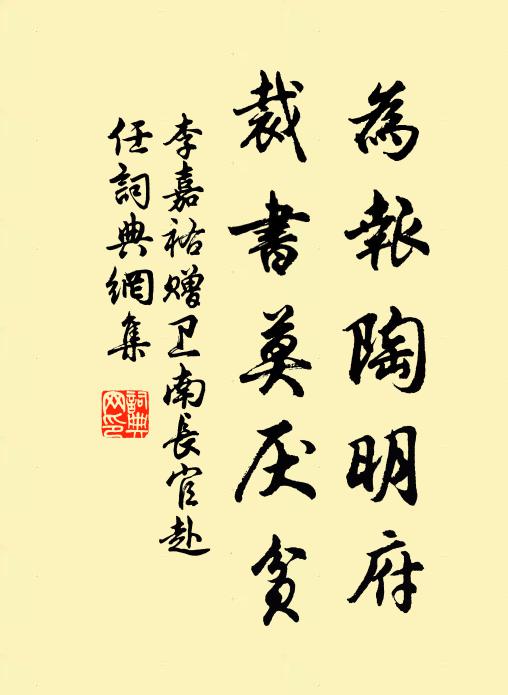 為報陶明府
裁書莫厌貧
李嘉祐赠卫南長官赴
任詞典網集
詞典
网印